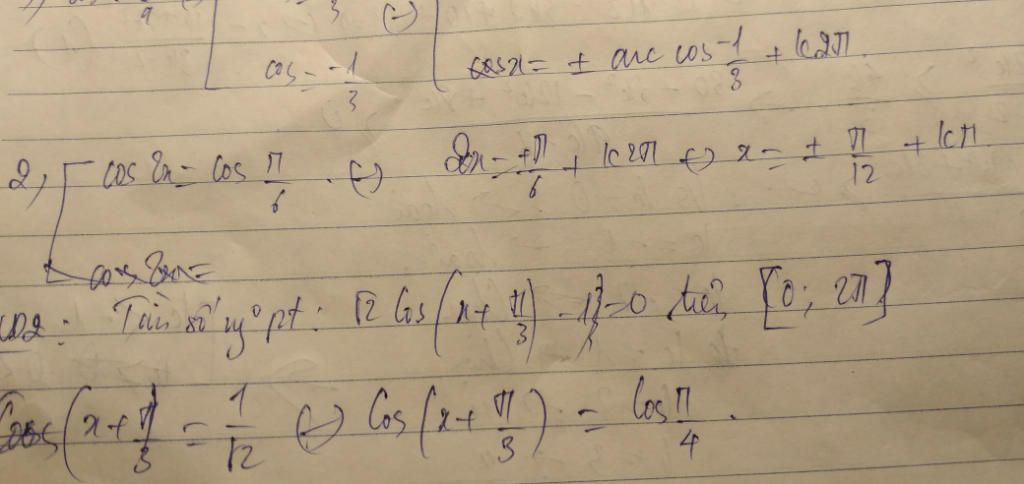 cos = -1/3 cosx = ± arc cos -1/3 + k2π
2, cos 2x = cos π/6 . (-) 2x = ±π/6 + k2π (-) x = ± π/12 + kπ
VD2: Tìm số n° pt: √2 cos(x + π/3) - 1 = 0 trên [0; 2π]
Cos(x + π/3 = 1/√2 (-) Cos(x + π/3) = Cos π/4 .